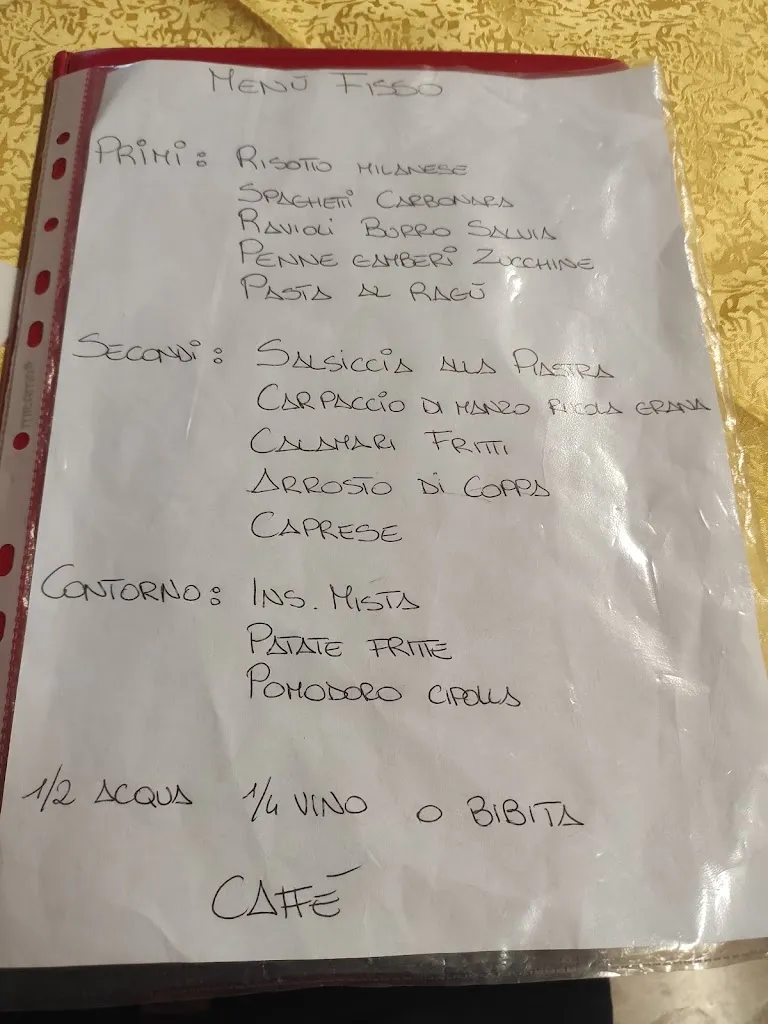 MENÙ FISSO
PRIMI: RISOTTO MILANESE
SPAGHETTI CARBONARA
RAVIOLI BURRO SALVIA
PENNE GAMBERI ZUCCHINE
PASTA AL RAGÙ
SECONDI: SALSICCIA ALLA PIASTRA
CARPACCIO DI MANZO RUCOLA GRANA
CALAMARI FRITTI
ARROSTO DI COPPA
CAPRESE
CONTORNO: INS. MISTA
PATATE FRITTE
POMODORO CIPOLLA
1/2 ACQUA 1/4 VINO O BIBITA
CAFFÉ